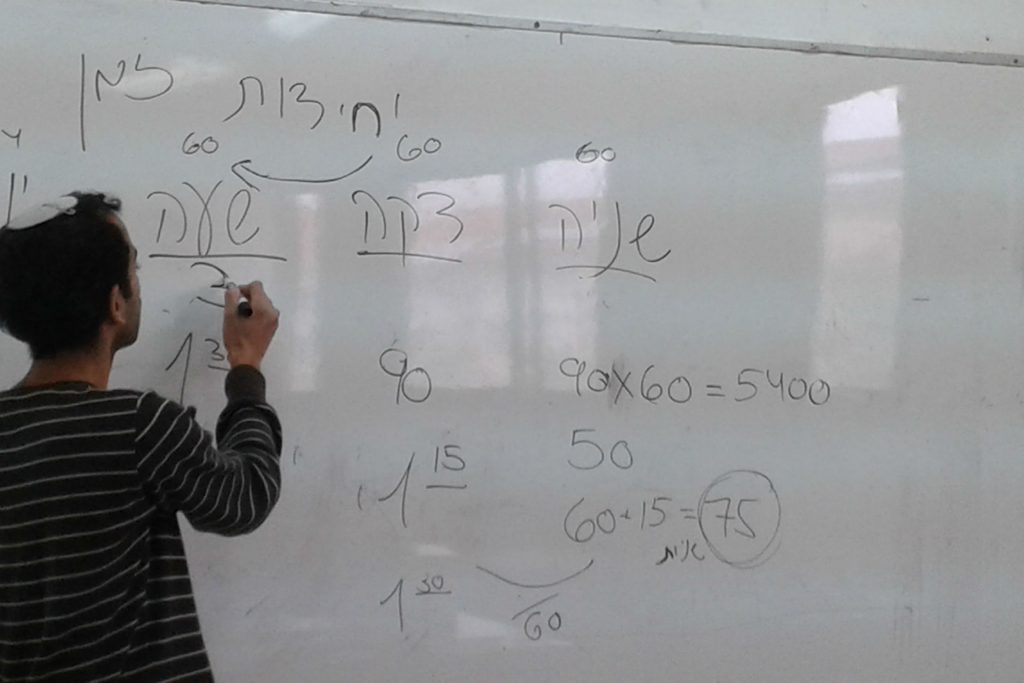 יחידות זמן
60 60 60
שניה דקה שעה
2
1 3
90
90x60=5400
50
1 15
60+15=75
שניות
1 30
60